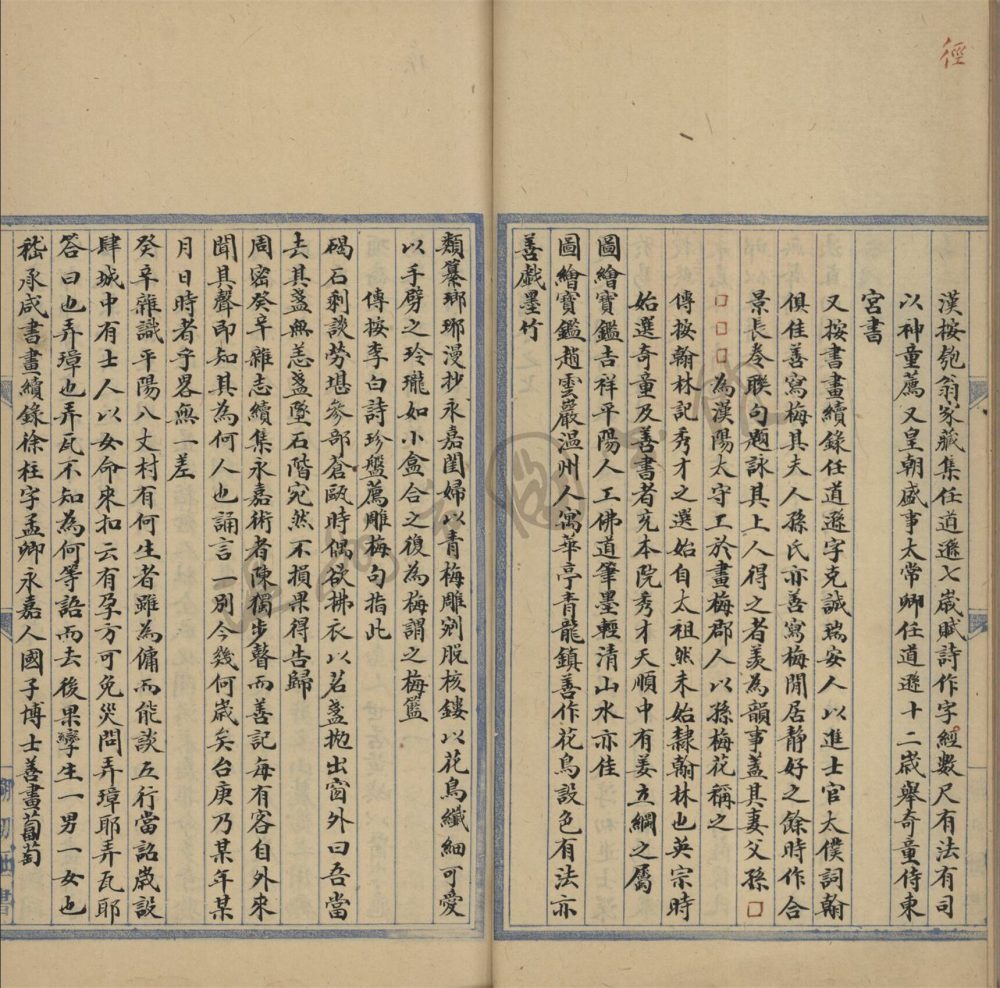 徑
漢按匏翁家藏集任道遜七歲賦詩作字經數尺有法有司
以神童薦又皇朝盛事太常卿任道遜十二歲舉奇童侍東
宮書
又按書畫續錄任道遜字克誠瑞安人以進士官太僕詞翰
俱佳善寫梅其夫人孫氏亦善寫梅閒居靜好之餘時作合
景長卷聯句題詠其上人得之者羨為韻事蓋其妻父孫□
□□□為漢陽太守工於畫梅郡人以孫梅花稱之
傳按翰林記秀才之選始自太祖然未始隸翰林也英宗時
始選奇童及善書者充本院秀才天順中有姜立綱之屬
圖繪寶鑑吉祥平陽人工佛道筆墨輕清山水亦佳
圖繪寶鑑趙雲巖温州人寓華亭青龍鎮善作花鳥設色有法亦
善戲墨竹
類纂瑯琊漫抄永嘉閨婦以青梅雕剜脱核鏤以花鳥纖細可愛
以手劈之玲瓏如小盒合之復為梅謂之梅籃
傳按李白詩珍盤薦雕梅句指此
碣石剩談勞堪參部蒼甌時偶欲拂衣以茗盞拋出窗外曰吾當
去其盞無恙盞墜石階宛然不損果得告歸
周密癸辛雜志續集永嘉術者陳獨步瞽而善記每有客自外來
聞其聲即知其為何人也誦言一別今幾何歲矣台庚乃某年某
月日時者乎畧無一差
癸辛雜識平陽八丈村有何生者雖為傭而能談五行當詔歲設
肆城中有士人以女命來扣云有孕方可免災問弄璋耶弄瓦耶
答曰也弄璋也弄瓦不知為何等語而去後果孿生一男一女也
嵇承咸書畫續錄徐柱字孟卿永嘉人國子博士善畫葡萄